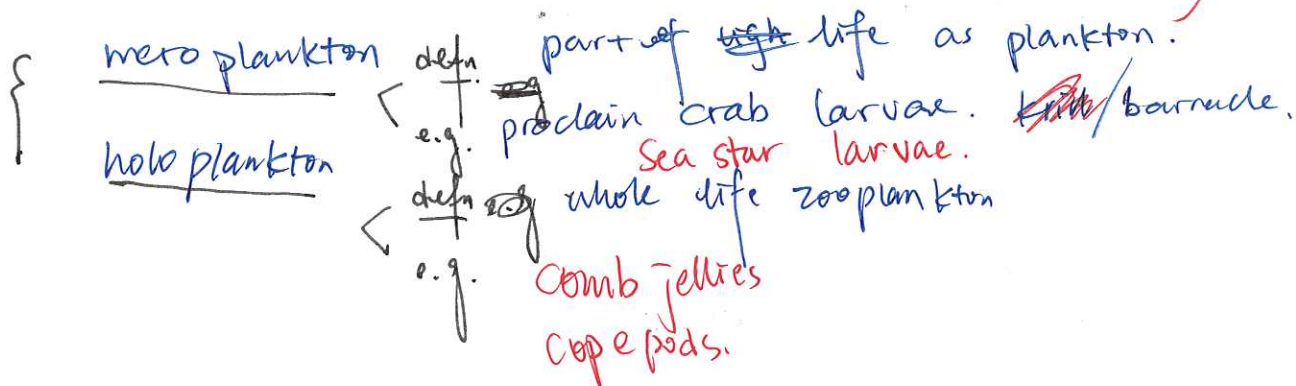 mero plankton defn. part of life as plankton.
e.g. proclain crab larvae. / barnacle.
sea star larvae.
holo plankton
defn whole life zooplankton
e.g. comb jellies
copepods.